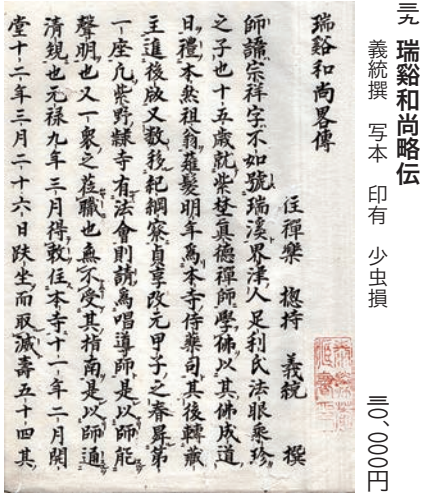 三九 瑞谿和尚略伝
義統撰 写本 印有 少虫損
三〇、〇〇〇円
瑞谿和尚畧傳
住禪樂 摠持 義統 撰
師諱宗祥字不如號瑞溪界津人足利氏法眼乘珍
之子也十五歲就紫埜真德禪師學佛以其佛成道
日禮本然祖翁薙髮明年為本寺侍藥司其後轉藏
主進後版又數移紀綱寮貞享改元甲子之春昇第
一座凡紫野隷寺有法會則請為唱導師是以師能
聲明也又一衆之莅職也無不受其指南是以師通
清規也元禄九年三月得敕住本寺十一年二月開
堂十二年三月二十六日趺坐而取滅壽五十四其